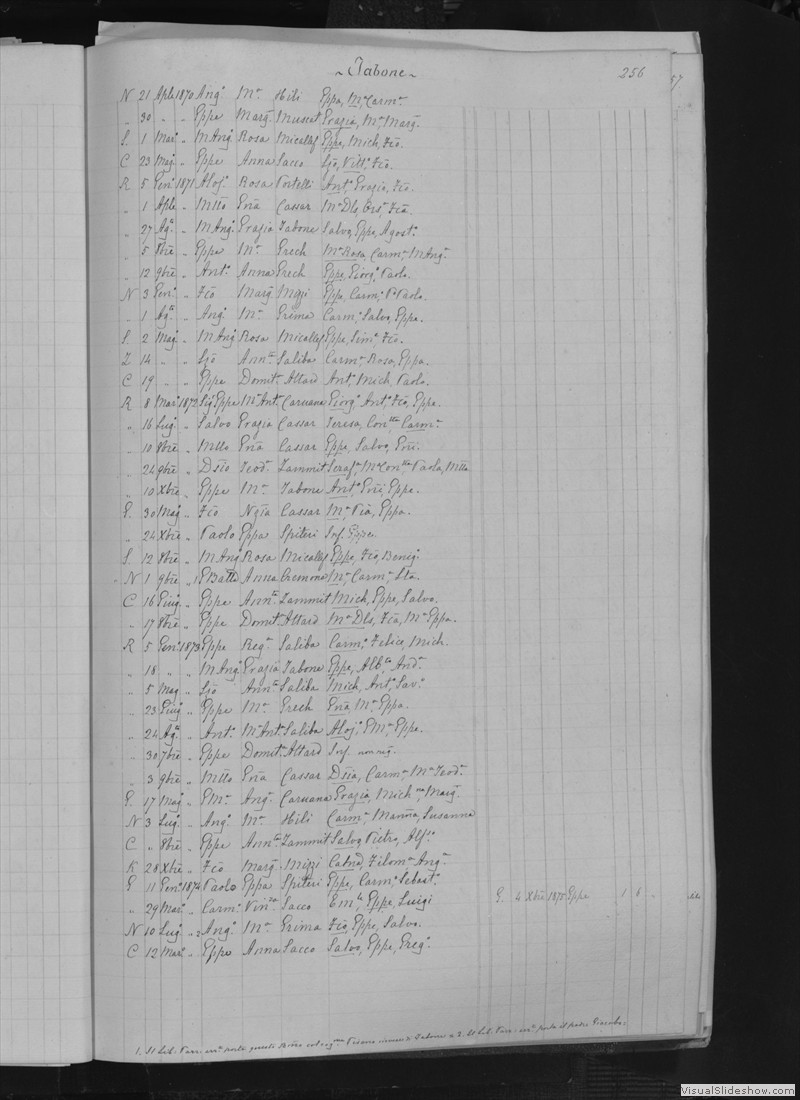 ~ Tabone ~ 256
57
N 21 Aple 1870 Angº Mª Hili Eppa, Mª Carmª
„ 30 „ „ Eppe Margª Muscat Grazia, Mª Margª
S. 1 Marº „ M Angº Rosa Micallef Eppe, Mich, Fcō.
C 23 Magº „ Eppe Anna Sacco Gjō, Vittº, Fcō.
R 5 Genº 1871 Alojº Rosa Portelli Antº, Grazio, Fcō.
„ 1 Aple „ Mttō Enā Cassar Mª Dls, Orsª, Fcā.
„ 27 Agº „ M Angº Grazia Tabone Salvo, Eppe, Agostº.
„ 5 8brē „ Eppe Mª Grech Mª Rosa, Carmª M Angª.
„ 12 9brē „ Antº Anna Grech Eppe, Giorgº Paolo.
N 3 Genº „ Fcō Margª Mizzi Eppe, Carmº Pº Paolo.
„ 1 Agº „ Angº Mª Grima Carmª, Salvo, Eppa.
S. 2 Magº „ M Angº Rosa Micallef Eppe, Simº, Fcō.
Z 14 „ „ Gjō Annta Saliba Carmª Rosa, Eppa.
C 19 „ „ Eppe Domitª Attard Antº, Mich, Paolo.
R 8 Marº 1872 Sigº Eppe Mª Antª Caruana Giorgº Antº, Fcō, Eppe.
„ 16 Lugº „ Salvo Grazia Cassar Teresa, Contta Carmª
„ 10 8brē „ Mttō Enā Cassar Eppe, Salvo, Enrī.
„ 24 9brē „ Dsīo Teodª Zammit Serafª, Mª Contta Paola, Mttā
„ 10 Xbrē „ Eppe Mª Tabone Antº Enrī, Eppe.
G. 30 Magº „ Fcō Nzīa Cassar Mª, Pia, Eppa.
„ 24 Xbrē „ Paolo Eppa Spiteri Inf.
S. 12 8brē „ M Angº Rosa Micallef Eppe, Fcō, Benigº
N 1 9brē „ 1 GBatta Anna Cremona Mª, Carmª
C 16 Giugº „ Eppe Annta Zammit Mich, Eppe, Salvo.
„ 17 8brē „ Eppe Domitª Attard Mª Dls, Fcā, Mª Eppa.
R 5 Genº 1873 Eppe Regª Saliba Carmº, Felice, Mich.
„ 18 „ „ M Angº Grazia Tabone Eppe, Albto, Andº.
„ 5 Magº „ Gjō Annta Saliba Mich, Antº, Savº.
„ 23 Giugº „ Eppe Mª Grech Enā Mª Eppa.
„ 24 Agº „ Antº Mª Antª Saliba Alojº, GMª, Eppe.
„ 30 7brē „ Eppe Domitª Attard Inf.
„ 3 9brē „ Mttō Enā Cassar Dsīa, Carmª Mª Teodª.
G. 17 Magº „ GMª Angª Caruana Grazia, Michna Margª
N 3 Lugº „ Angº Mª Hili Carmª Marīna, Susanna
C „ 8brē „ Eppe Annta Zammit Salvo, Pietro, Alfº.
K 28 Xbrē „ Fcō Margª Mizzi Catnā, Filomª Angª
G 11 Genº 1874 Paolo Eppa Spiteri Eppe, Carmº Sebastº.
„ 29 Marº „ Carmº Vinza Sacco Emla, Eppe, Luigi G. 4 Xbrē 1875 Eppe 1 6
N 10 Lugº „ 2 Angº Mª Grima Fcō, Eppe, Salvo.
C 12 Marº „ Eppe Anna Sacco Salvo, Eppe, Gregº.
VisualSlideshow.com